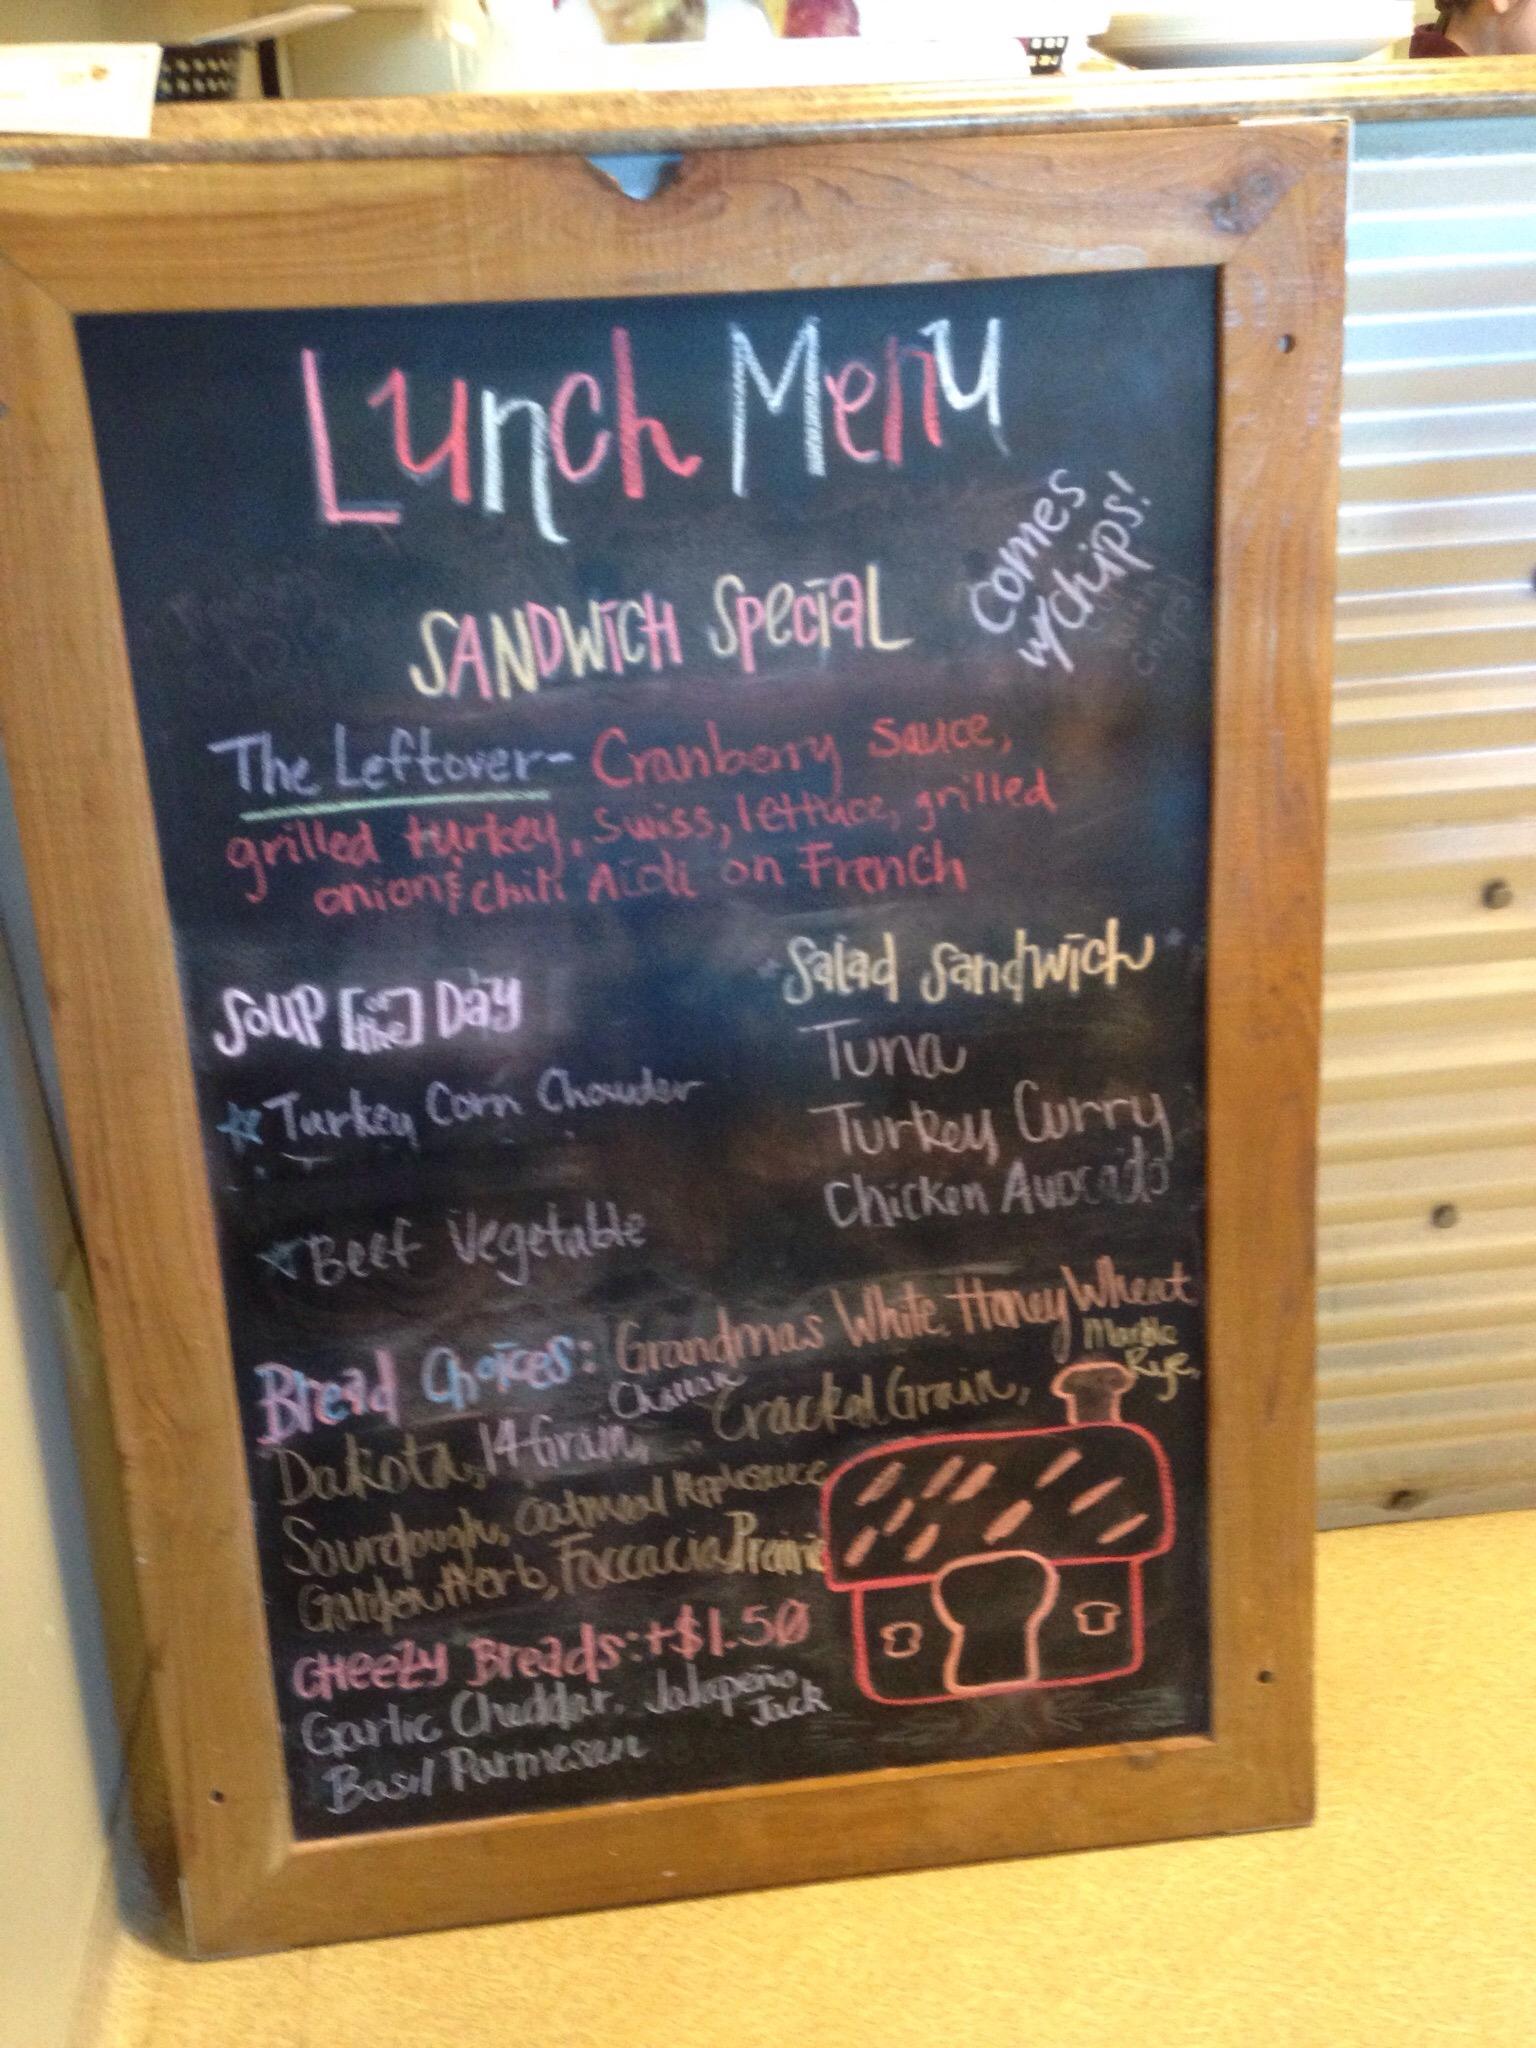 Lunch Menu
Comes
w/chips!
SANDWICH SPECIAL
The Leftover- Cranberry sauce,
grilled turkey, swiss, lettuce, grilled
onion & chili Aioli on French
Soup [of the] Day
Turkey Corn Chowder
Beef Vegetable
Salad Sandwich
Tuna
Turkey Curry
Chicken Avocado
Bread Choices: Grandmas White, Honey Wheat
Marble
Rye,
Challah
Dakota, 14 Grain, Cracked Grain,
Sourdough, Oatmeal Applesauce
Garden Herb, Foccacia, Prairie
CHeezy Breads: +$1.50
Garlic Cheddar, Jalapeño
Jack
Basil Parmesan